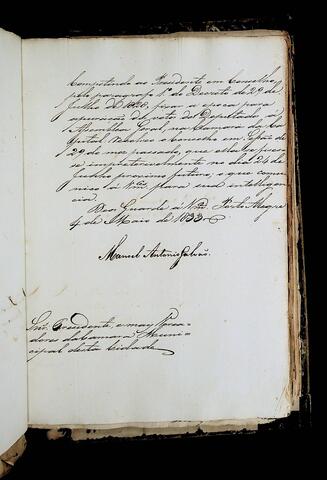 Competindo ao Presidente em Conselho
pelo paragrafo 1º do Decreto de 29 de
Julho de 1828, fixar a epoca para
apuração de votos de Deputados á
Assemblea Geral, na Camara da Ca
pital, resolveo o Conselho em Sessão de
29 do mez passado, que ella se fizes
se impreterivelmente no dia 24 de
Junho proximo futuro, o que commu
nico á Vmces para sua intelligen
cia.
Deos Guarde á Vmces Porto Alegre
4 de Maio de 1833.
Manoel Antonio Galvão.
Snrs. Presidente, e mais Verea
dores da Camara Muni
cipal desta Cidade